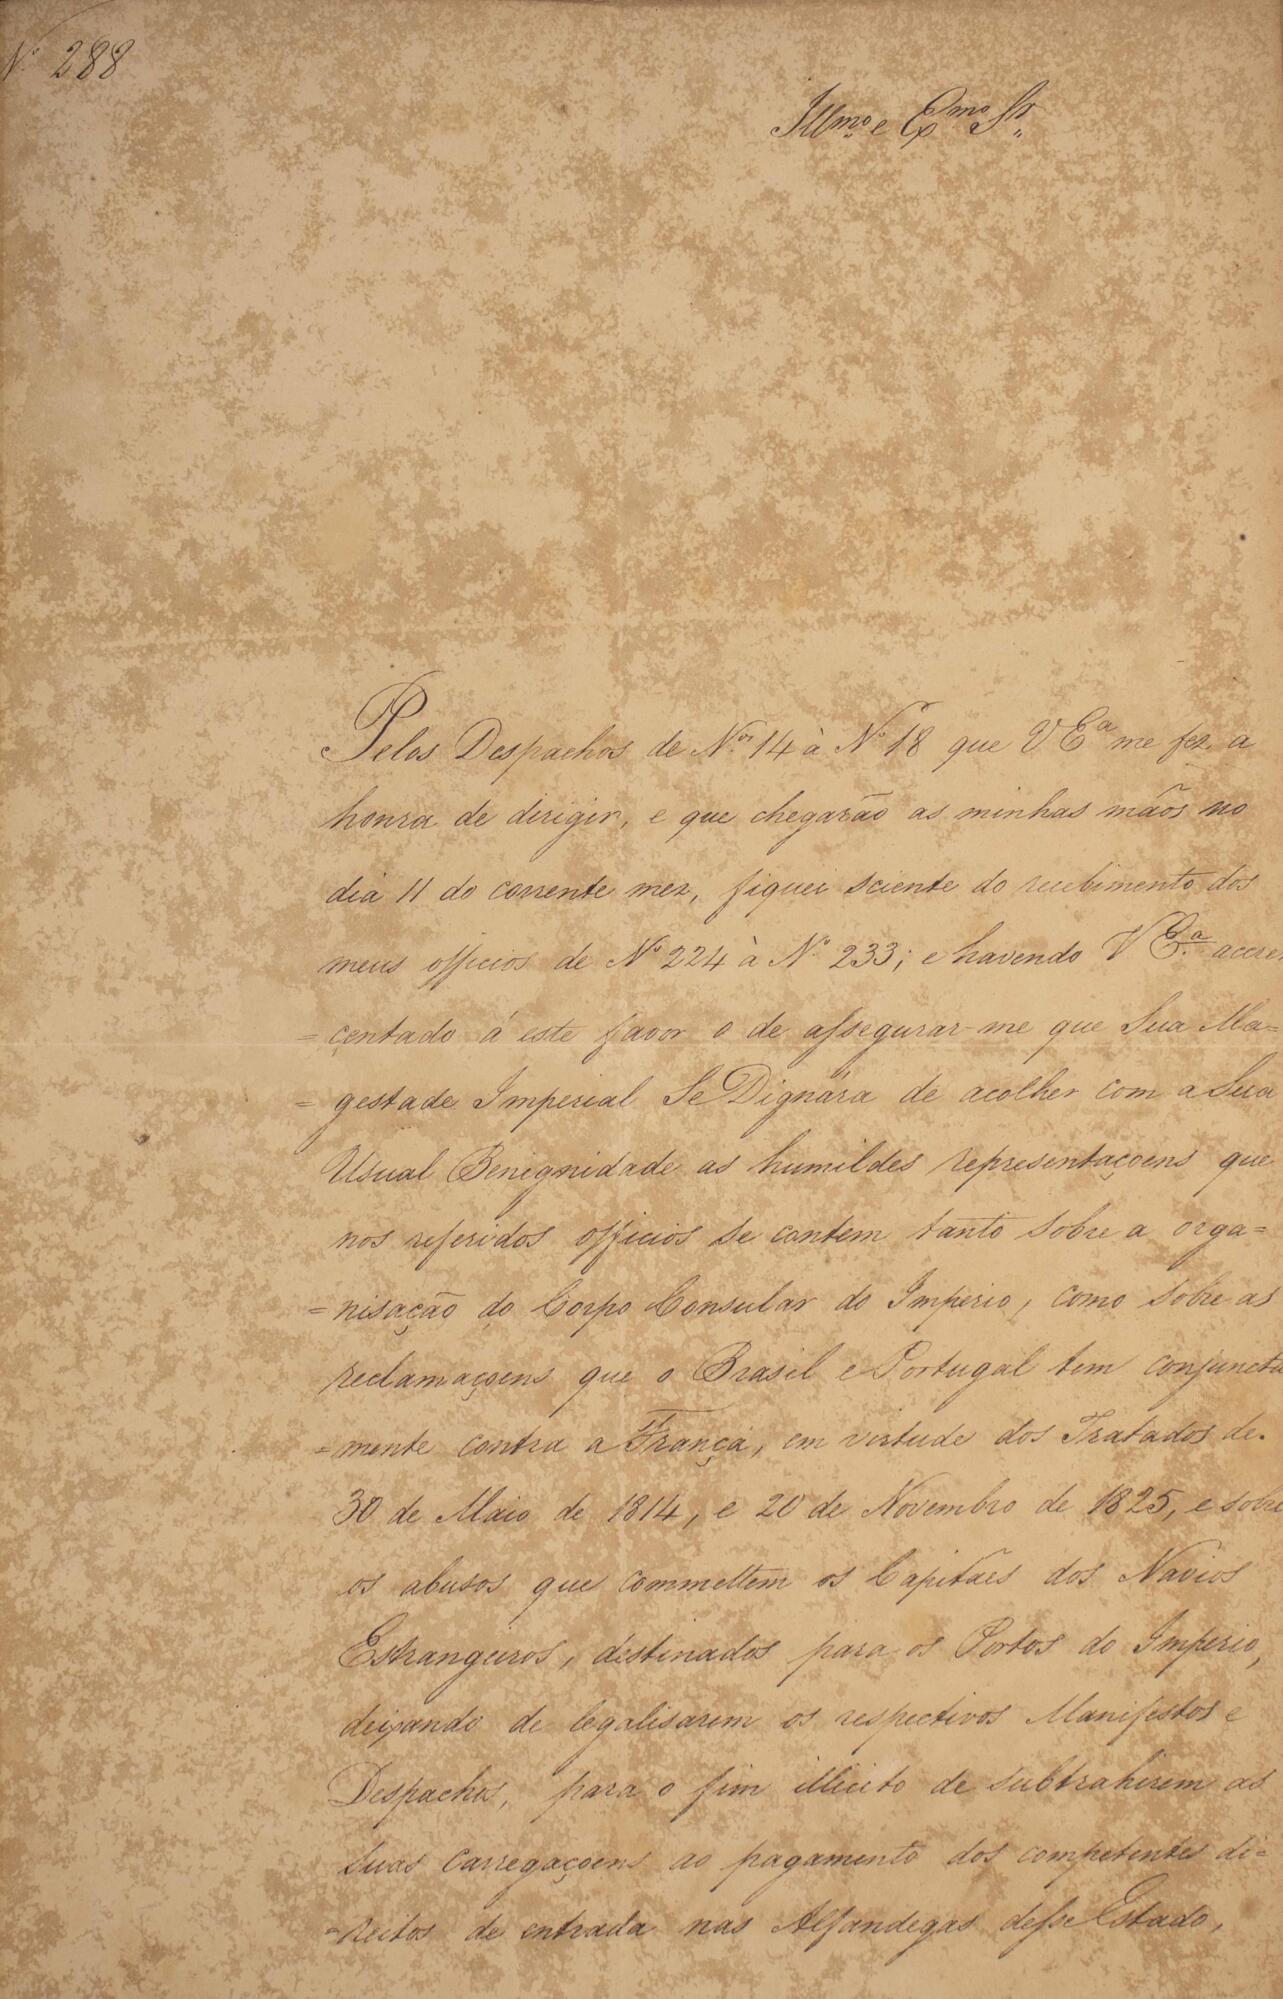 Nº 288
Illmo e Exmo Sr
Pelos Despachos de Nos 14 à Nº 18 que V Ea me fez a
honra de dirigir, e que chegarão as minhas mãos no
dia 11 do corrente mez, fiquei sciente do recebimento dos
meus officios de Nº 224 à Nº 233; e havendo V Ea accres
=centado á este favor o de assegurar-me que Sua Ma=
=gestade Imperial Se Dignára de acolher com a Sua
Usual Benignidade as humildes representaçoens que
nos referidos officios se contem tanto sobre a orga=
=nisação do Corpo Consular do Imperio, como sobre as
reclamaçoens que o Brasil e Portugal tem conjuncta
=mente contra a França, em virtude dos Tratados de
30 de Maio de 1814, e 20 de Novembro de 1825, e sobre
os abusos que commettem os Capitães dos Navios
Estrangeiros, destinados para os Portos do Imperio,
deixando de legalisarem os respectivos Manifestos e
Despachos, para o fim illicito de subtrahirem as
suas carregaçoens ao pagamento dos competentes di=
=reitos de entrada nas Alfandegas desse Estado,